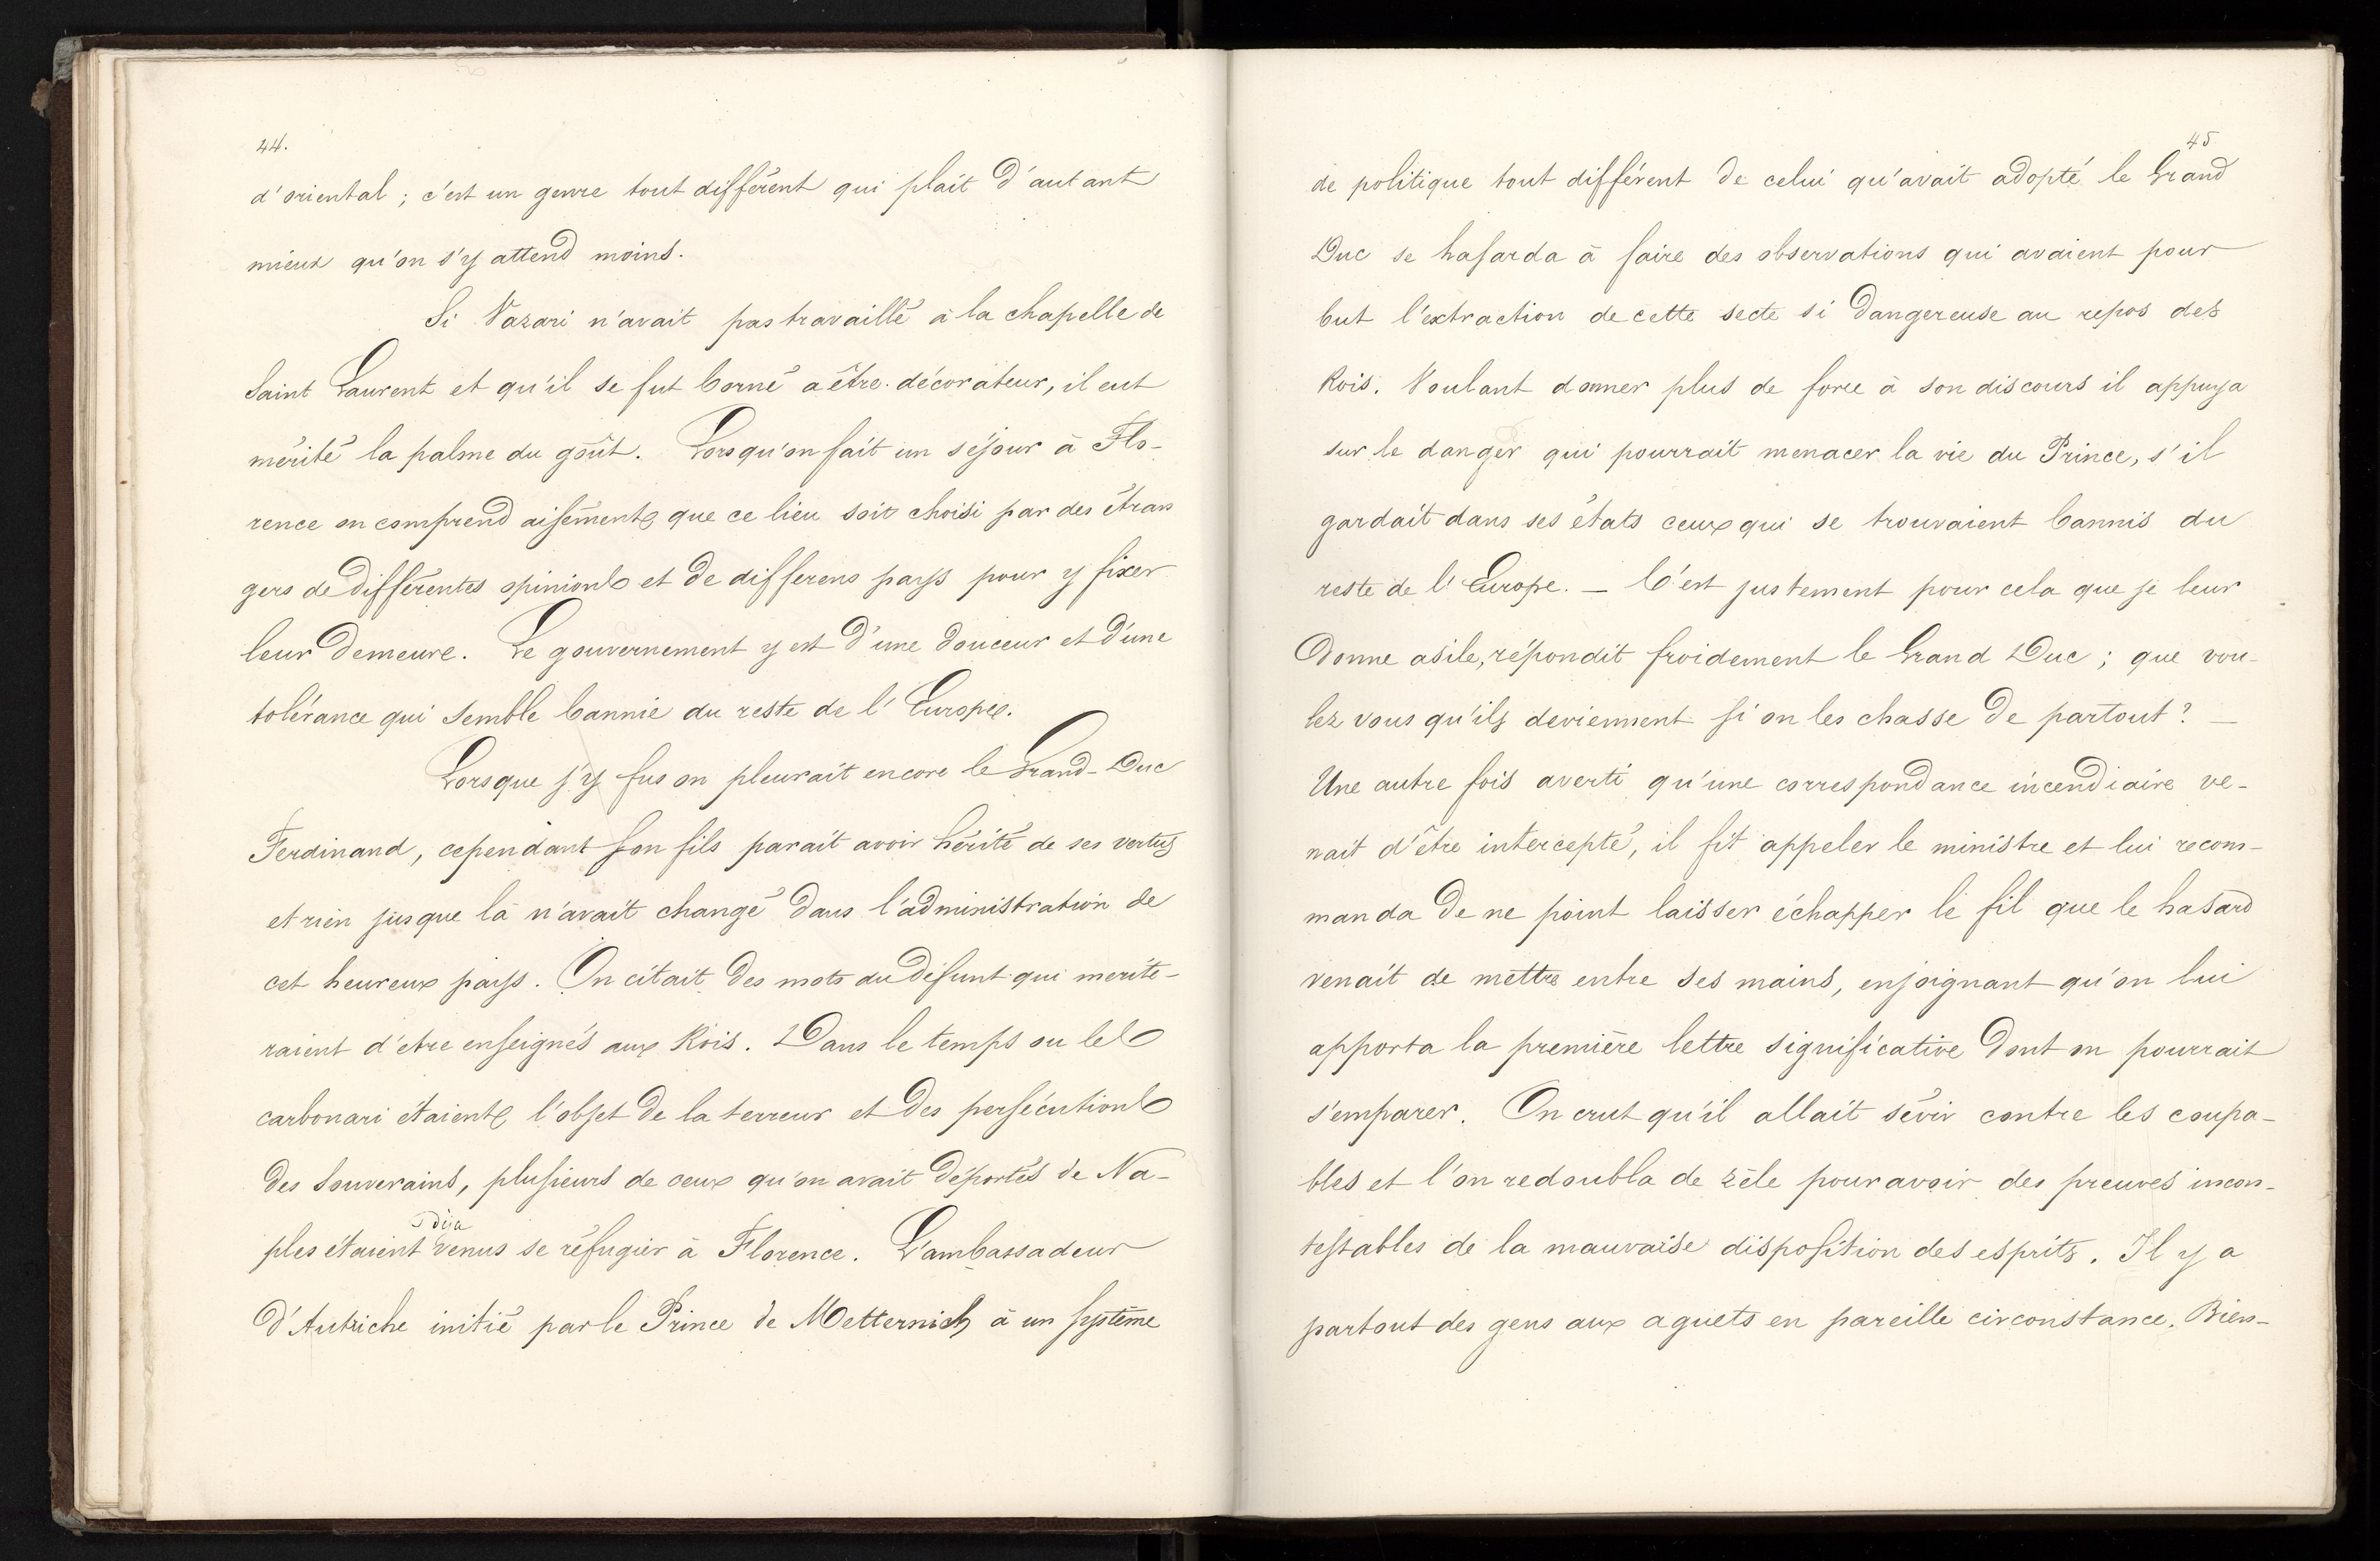 44.
d'oriental ; c'est un genre tout différent qui plait d'autant
mieux qu'on s'y attend moins.
Si Vazari n'avait pas travaillé à la chapelle de
Saint Laurent et qu'il se fut borné a être décorateur, il eut
mérité la palme du goût. Lorsqu'on fait un séjour à Flo-
rence on comprend aisément que ce lieu soit choisi par des étran
gers de différentes opinions et de differens pays pour y fixer
leur demeure. Le gouvernement y est d'une douceur et d'une
tolérance qui semble bannie du reste de l'Europe.
Lorsque j'y fus on pleurait encore le Grand-Duc
Ferdinand, cependant son fils parait avoir hérité de ses vertus
et rien jusque là n'avait changé dans l'administration de
cet heureux pays. On citait des mots du défunt qui mérite-
raient d'etre enseignés aux Rois. Dans le temps ou les
carbonari étaient l'objet de la terreur et des persécutions
des Souverains, plusieurs de ceux qu'on avait déportés de Na-
déja
ples étaient venus se réfugier à Florence. L'ambassadeur
d'Autriche initié par le Prince de Metternich à un système
45
de politique tout différent de celui qu'avait adopté le Grand
Duc se hasarda à faire des observations qui avaient pour
but l'extraction de cette secte si dangereuse au repos des
Rois. Voulant donner plus de force à son discours il appuya
sur le danger qui pourrait menacer la vie du Prince, s'il
gardait dans ses états ceux qui se trouvaient bannis du
reste de l'Europe. _ C'est justement pour cela que je leur
donne asile, répondit froidement le Grand Duc ; que vou-
lez vous qu'ils deviennent si on les chasse de partout ? _
Une autre fois averti qu'une correspondance incendiaire ve-
nait d'être intercepté, il fit appeler le ministre et lui recom-
manda de ne point laisser échapper le fil que le hasard
venait de mettre entre ses mains, enjoignant qu'on lui
apporta la première lettre significative dont on pourrait
s'emparer. On crut qu'il allait sévir contre les coupa-
bles et l'on redoubla de zèle pour avoir des preuves incon-
testables de la mauvaise disposition des esprits. Il y a
partout des gens aux aguets en pareille circonstance. Bien-